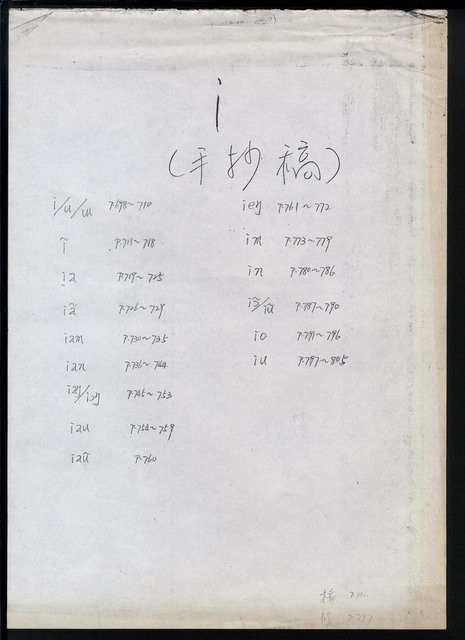 i
(手抄稿)
i/u/ɯ P.698~710
ĩ P.711~718
ia P.719~725
iã P.726~729
iam P.730~735
ian P.736~744
iaŋ/iɔŋ P.745~753
iau P.754~759
iaũ P.760
ieŋ P.761~772
im P.773~779
in P.780~786
P.787~790
io P.791~796
iu P.797~805